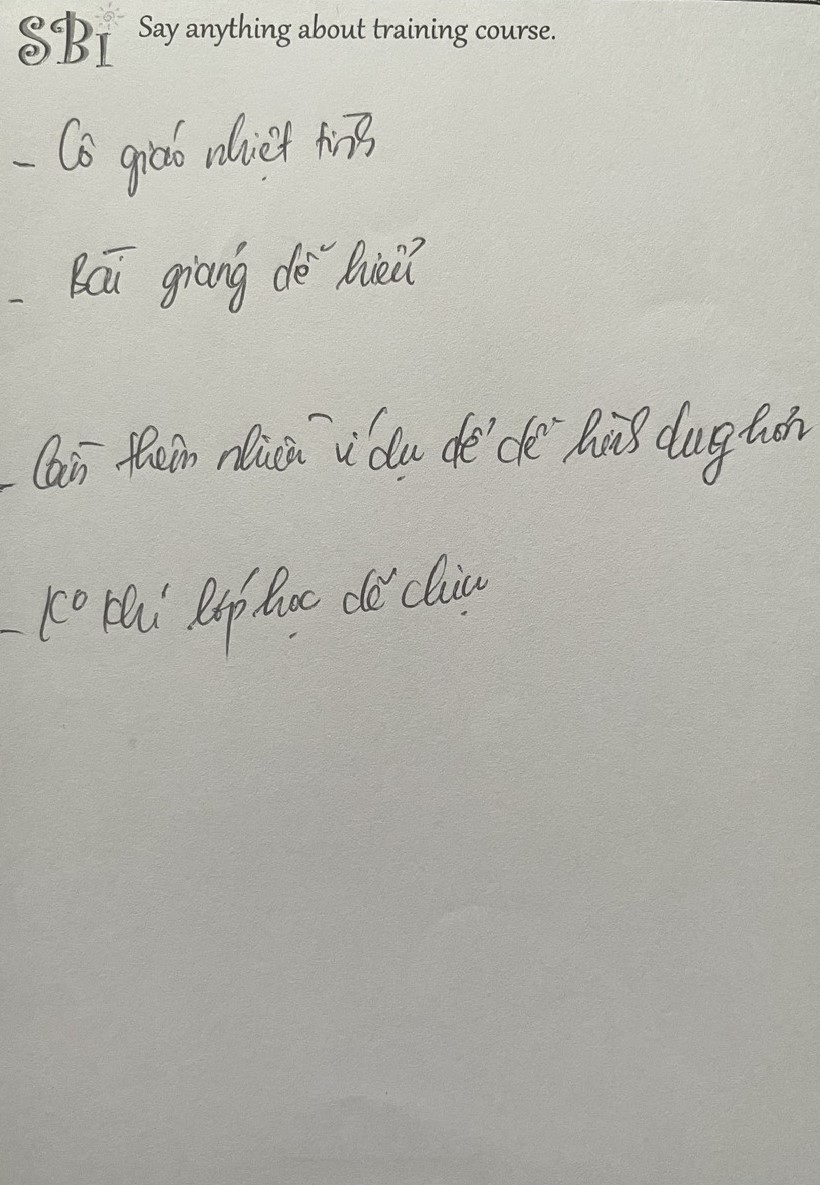 SBI Say anything about training course.
- Cô giáo nhiệt tình
- Bài giảng dễ hiểu
- Cần thêm nhiều ví dụ để dễ hình dung hơn
- Ko khí lớp học dễ chịu